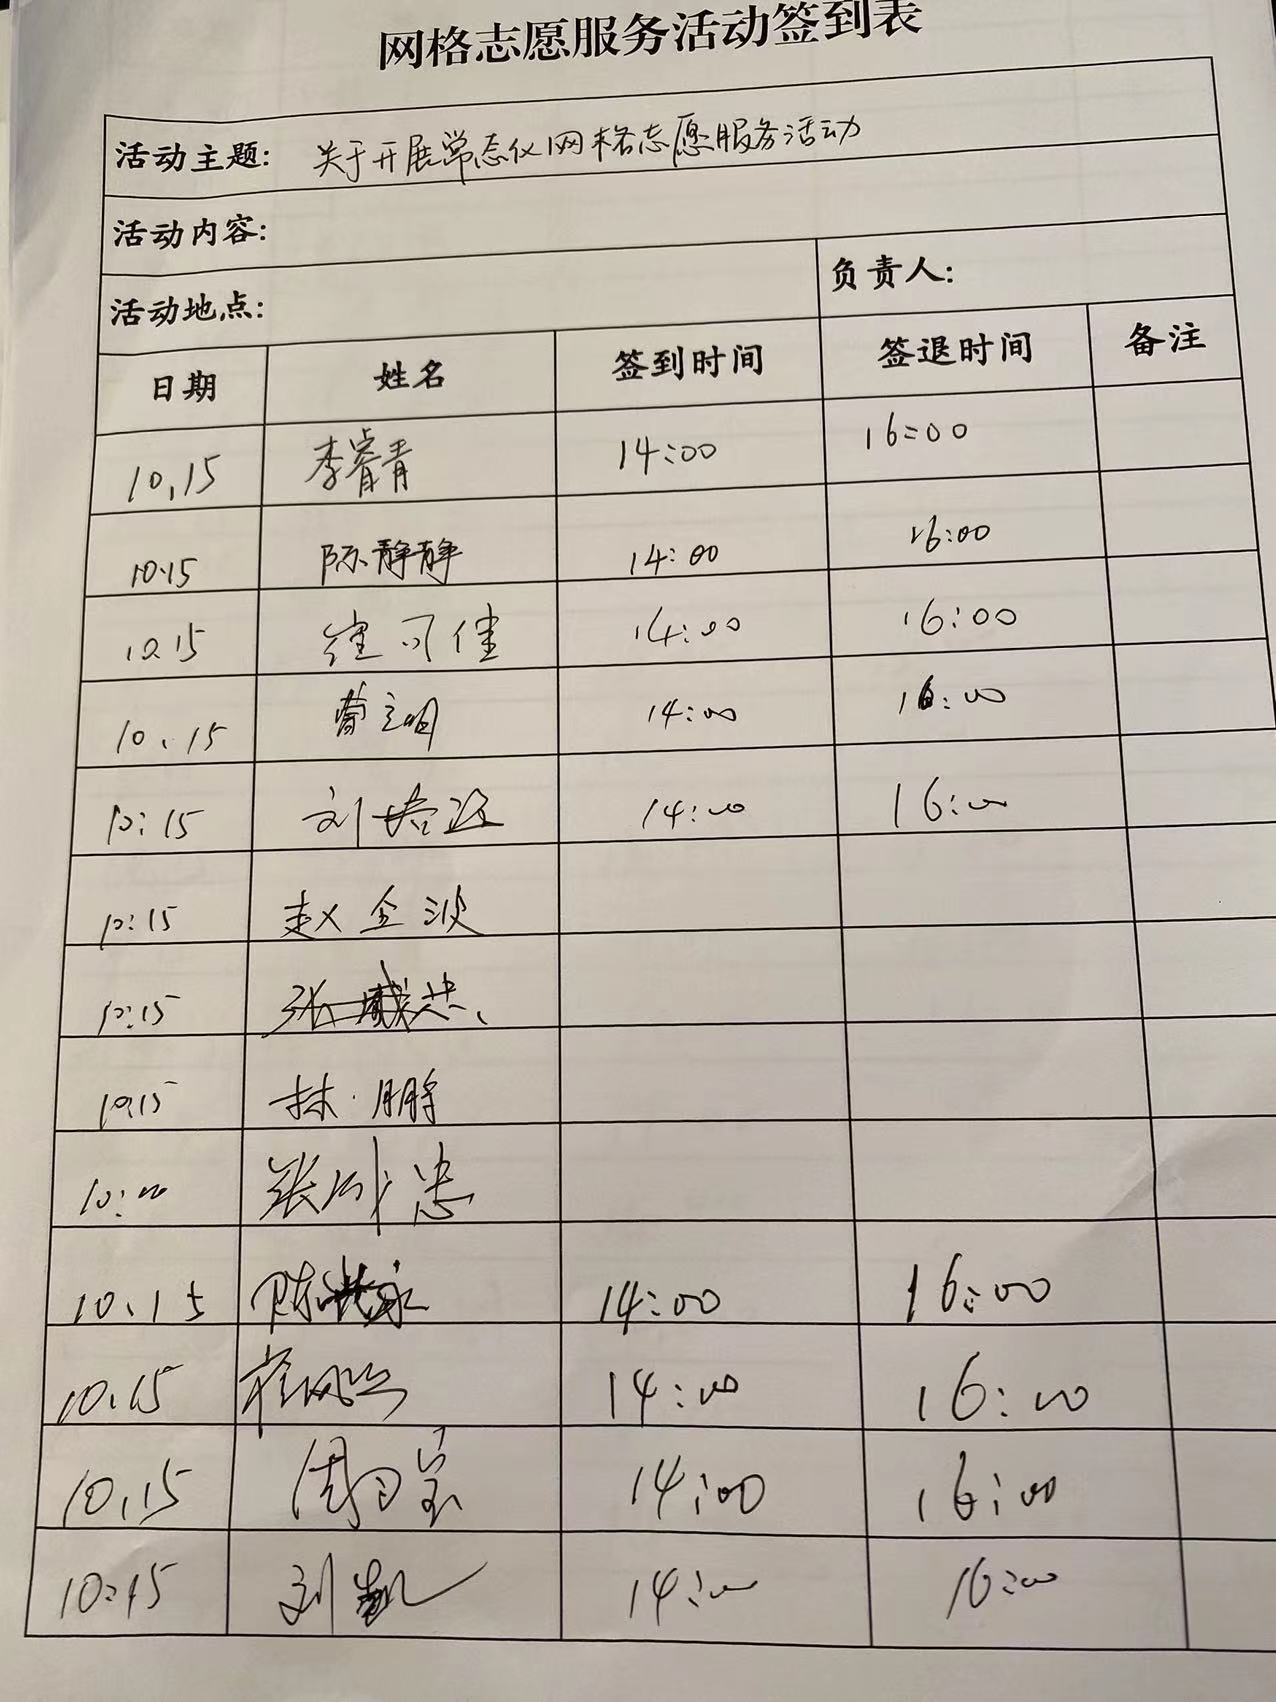 网格志愿服务活动签到表
活动主题: 关于开展常态化网格志愿服务活动
活动内容:
活动地点: 负责人:
日期 姓名 签到时间 签退时间 备注
10.15 李睿青 14:00 16:00
10.15 陈静静 14:00 16:00
10.15 可佳 14:00 16:00
10.15 14:00 16:00
10:15 刘 14:00 16:00
10:15 赵金波
10:15 张
10.15 林鹏
10:00 张成忠
10.15 陈 14:00 16:00
10.15 14:00 16:00
10.15 周日宝 14:00 16:00
10:15 刘凯 14:00 16:00